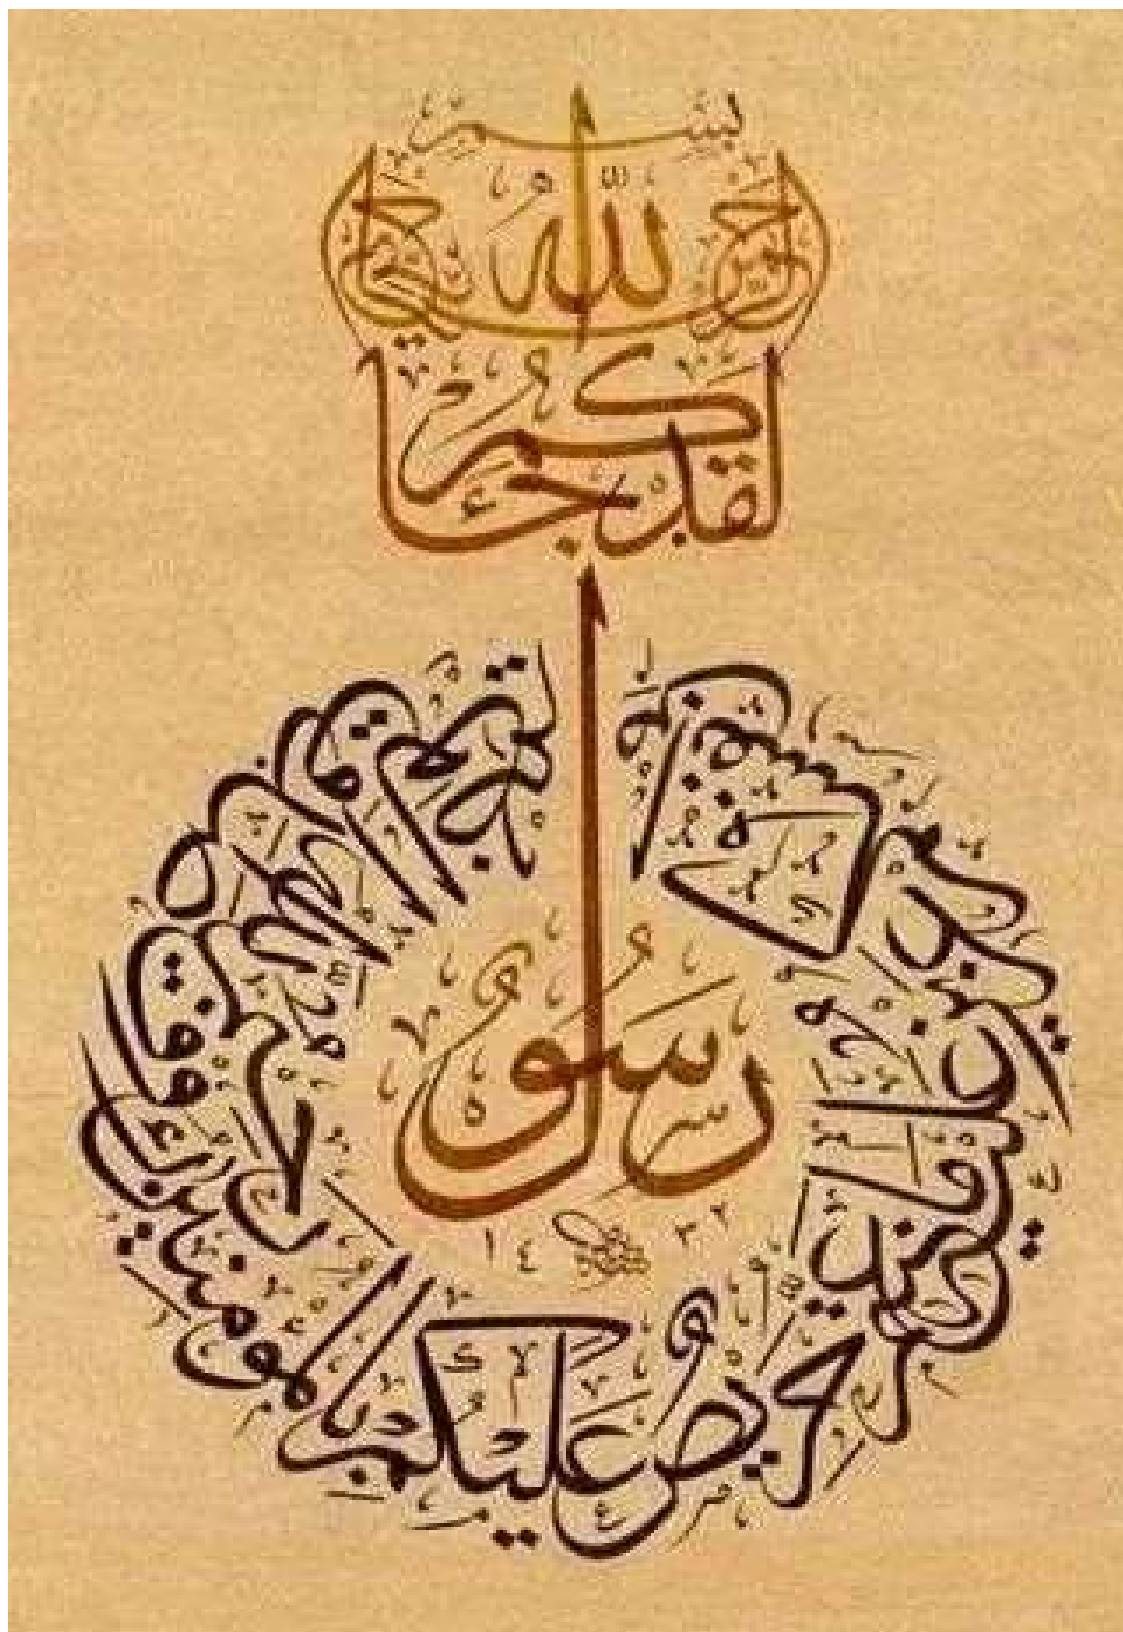 بِسْمِ
اللَّهِ
الرَّحْمَنِ الرَّحِيمِ
لَقَدْ جَاءَكُمْ
رَسُولٌ
مِنْ أَنْفُسِكُمْ عَزِيزٌ عَلَيْهِ مَا عَنِتُّمْ حَرِيصٌ عَلَيْكُمْ بِالْمُؤْمِنِينَ رَءُوفٌ رَحِيمٌ
١٤٣٢